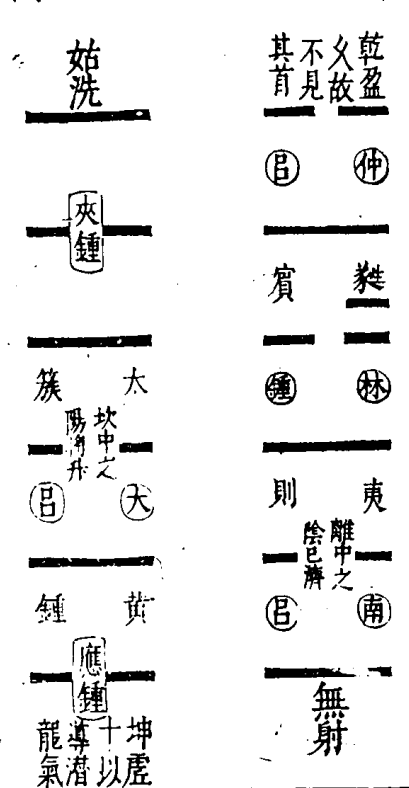 乾盈
久故
不見
其首
仲呂
蕤賓
林鍾
夷則
離中之
陰已濟
南呂
無射
姑洗
夾鍾
太簇
坎中之
陽升
大呂
黃鍾
應鍾
坤虛
十以
導潛
龍氣